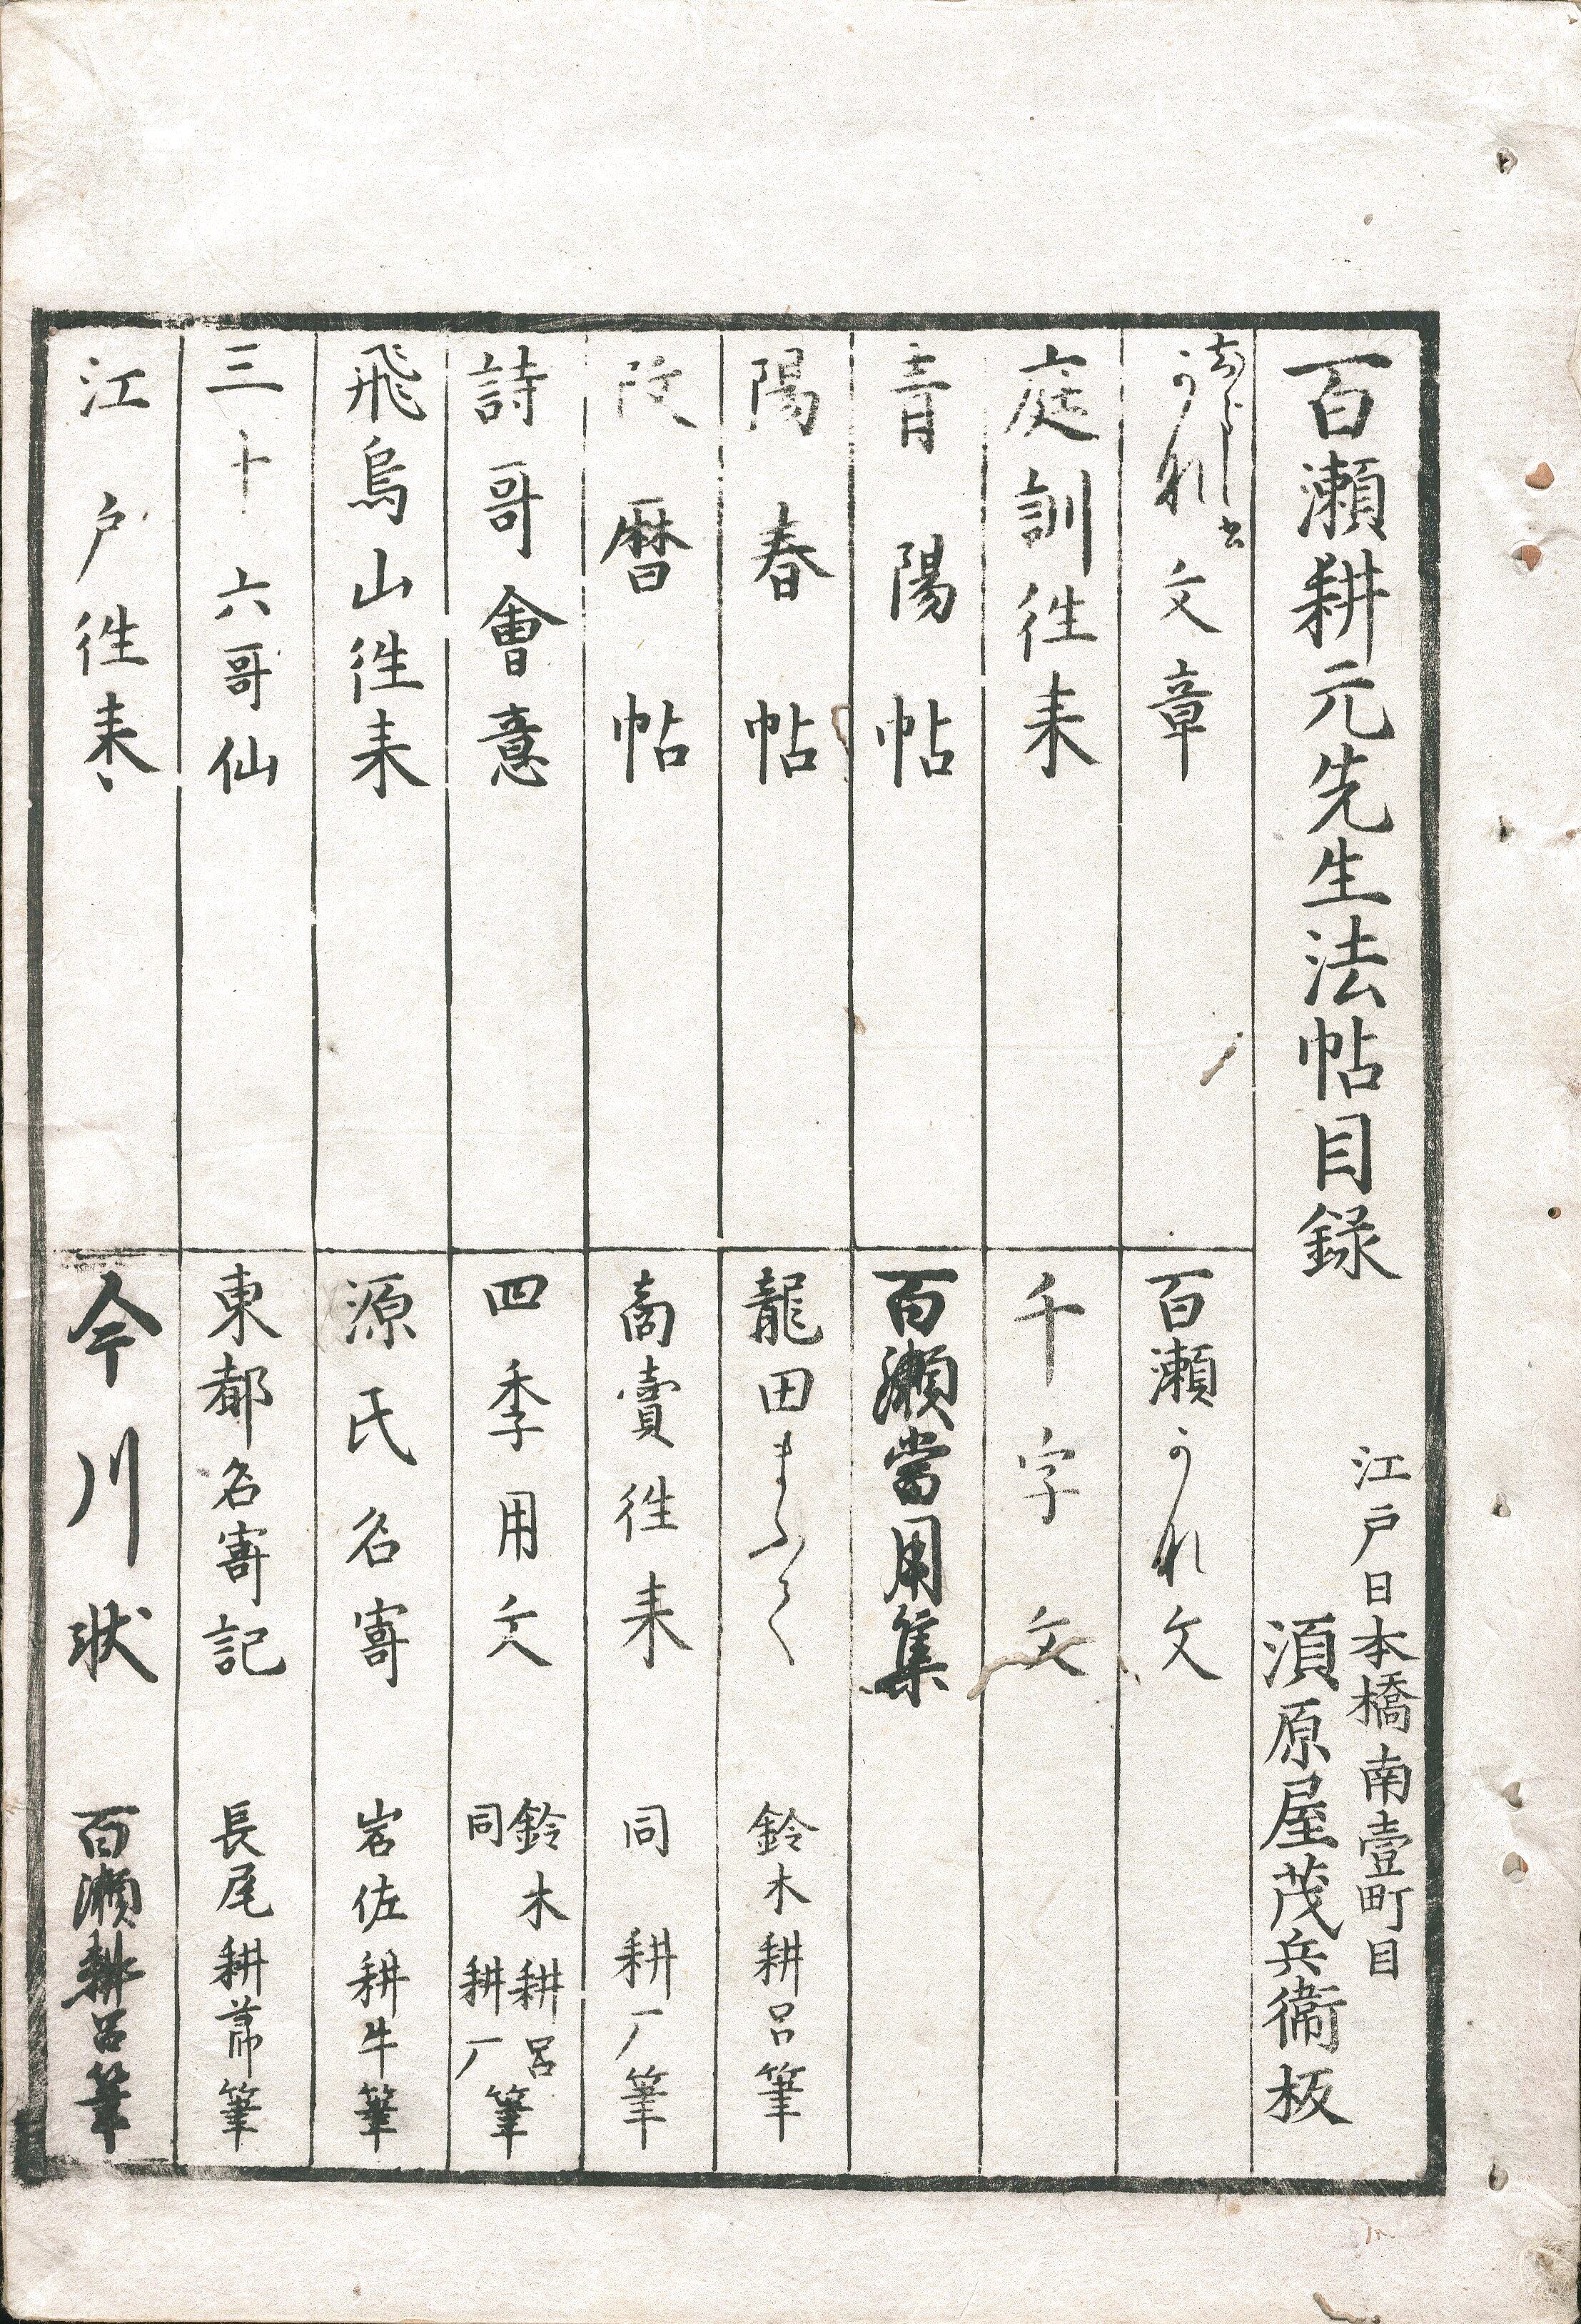 百瀬耕元先生法帖目録
江戸日本橋南壹町目
須原屋茂兵衞板
うれ文章
庭訓徃来
青陽帖
陽春帖
改暦帖
詩哥會意
飛鳥山徃来
三十六哥仙
江戸徃来
百瀬うれ文
千字文
百瀬當用集
龍田まふて 鈴木耕呂筆
商賣徃来 同耕厂筆
四季用文 鈴木耕呂 同耕厂 筆
源氏名寄 岩佐耕牛筆
東都名寄記 長尾耕筆
今川状 百瀬耕呂筆